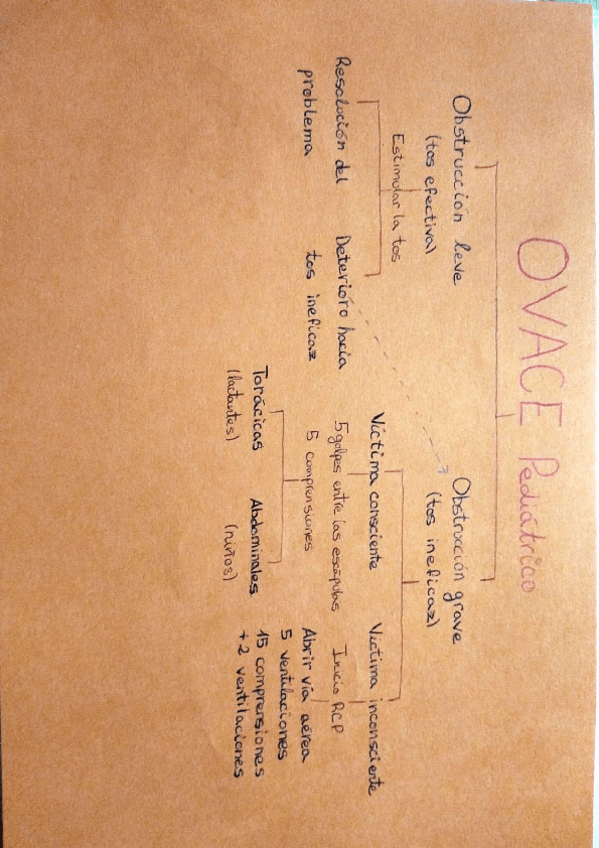 OVACE Pediátrico
Obstrucción leve
(tos efectiva)
Estimular la tos
Resolución del
problema
Deterioro hacia
tos ineficaz
Obstrucción grave
(tos ineficaz)
Víctima consciente
5 golpes entre las escápulas
5 comprensiones
Torácicas
(lactantes)
Abdominales
(niños)
Víctima inconsciente
Inicio RCP
Abrir vía aérea
5 ventilaciones
15 comprensiones
+ 2 ventilaciones